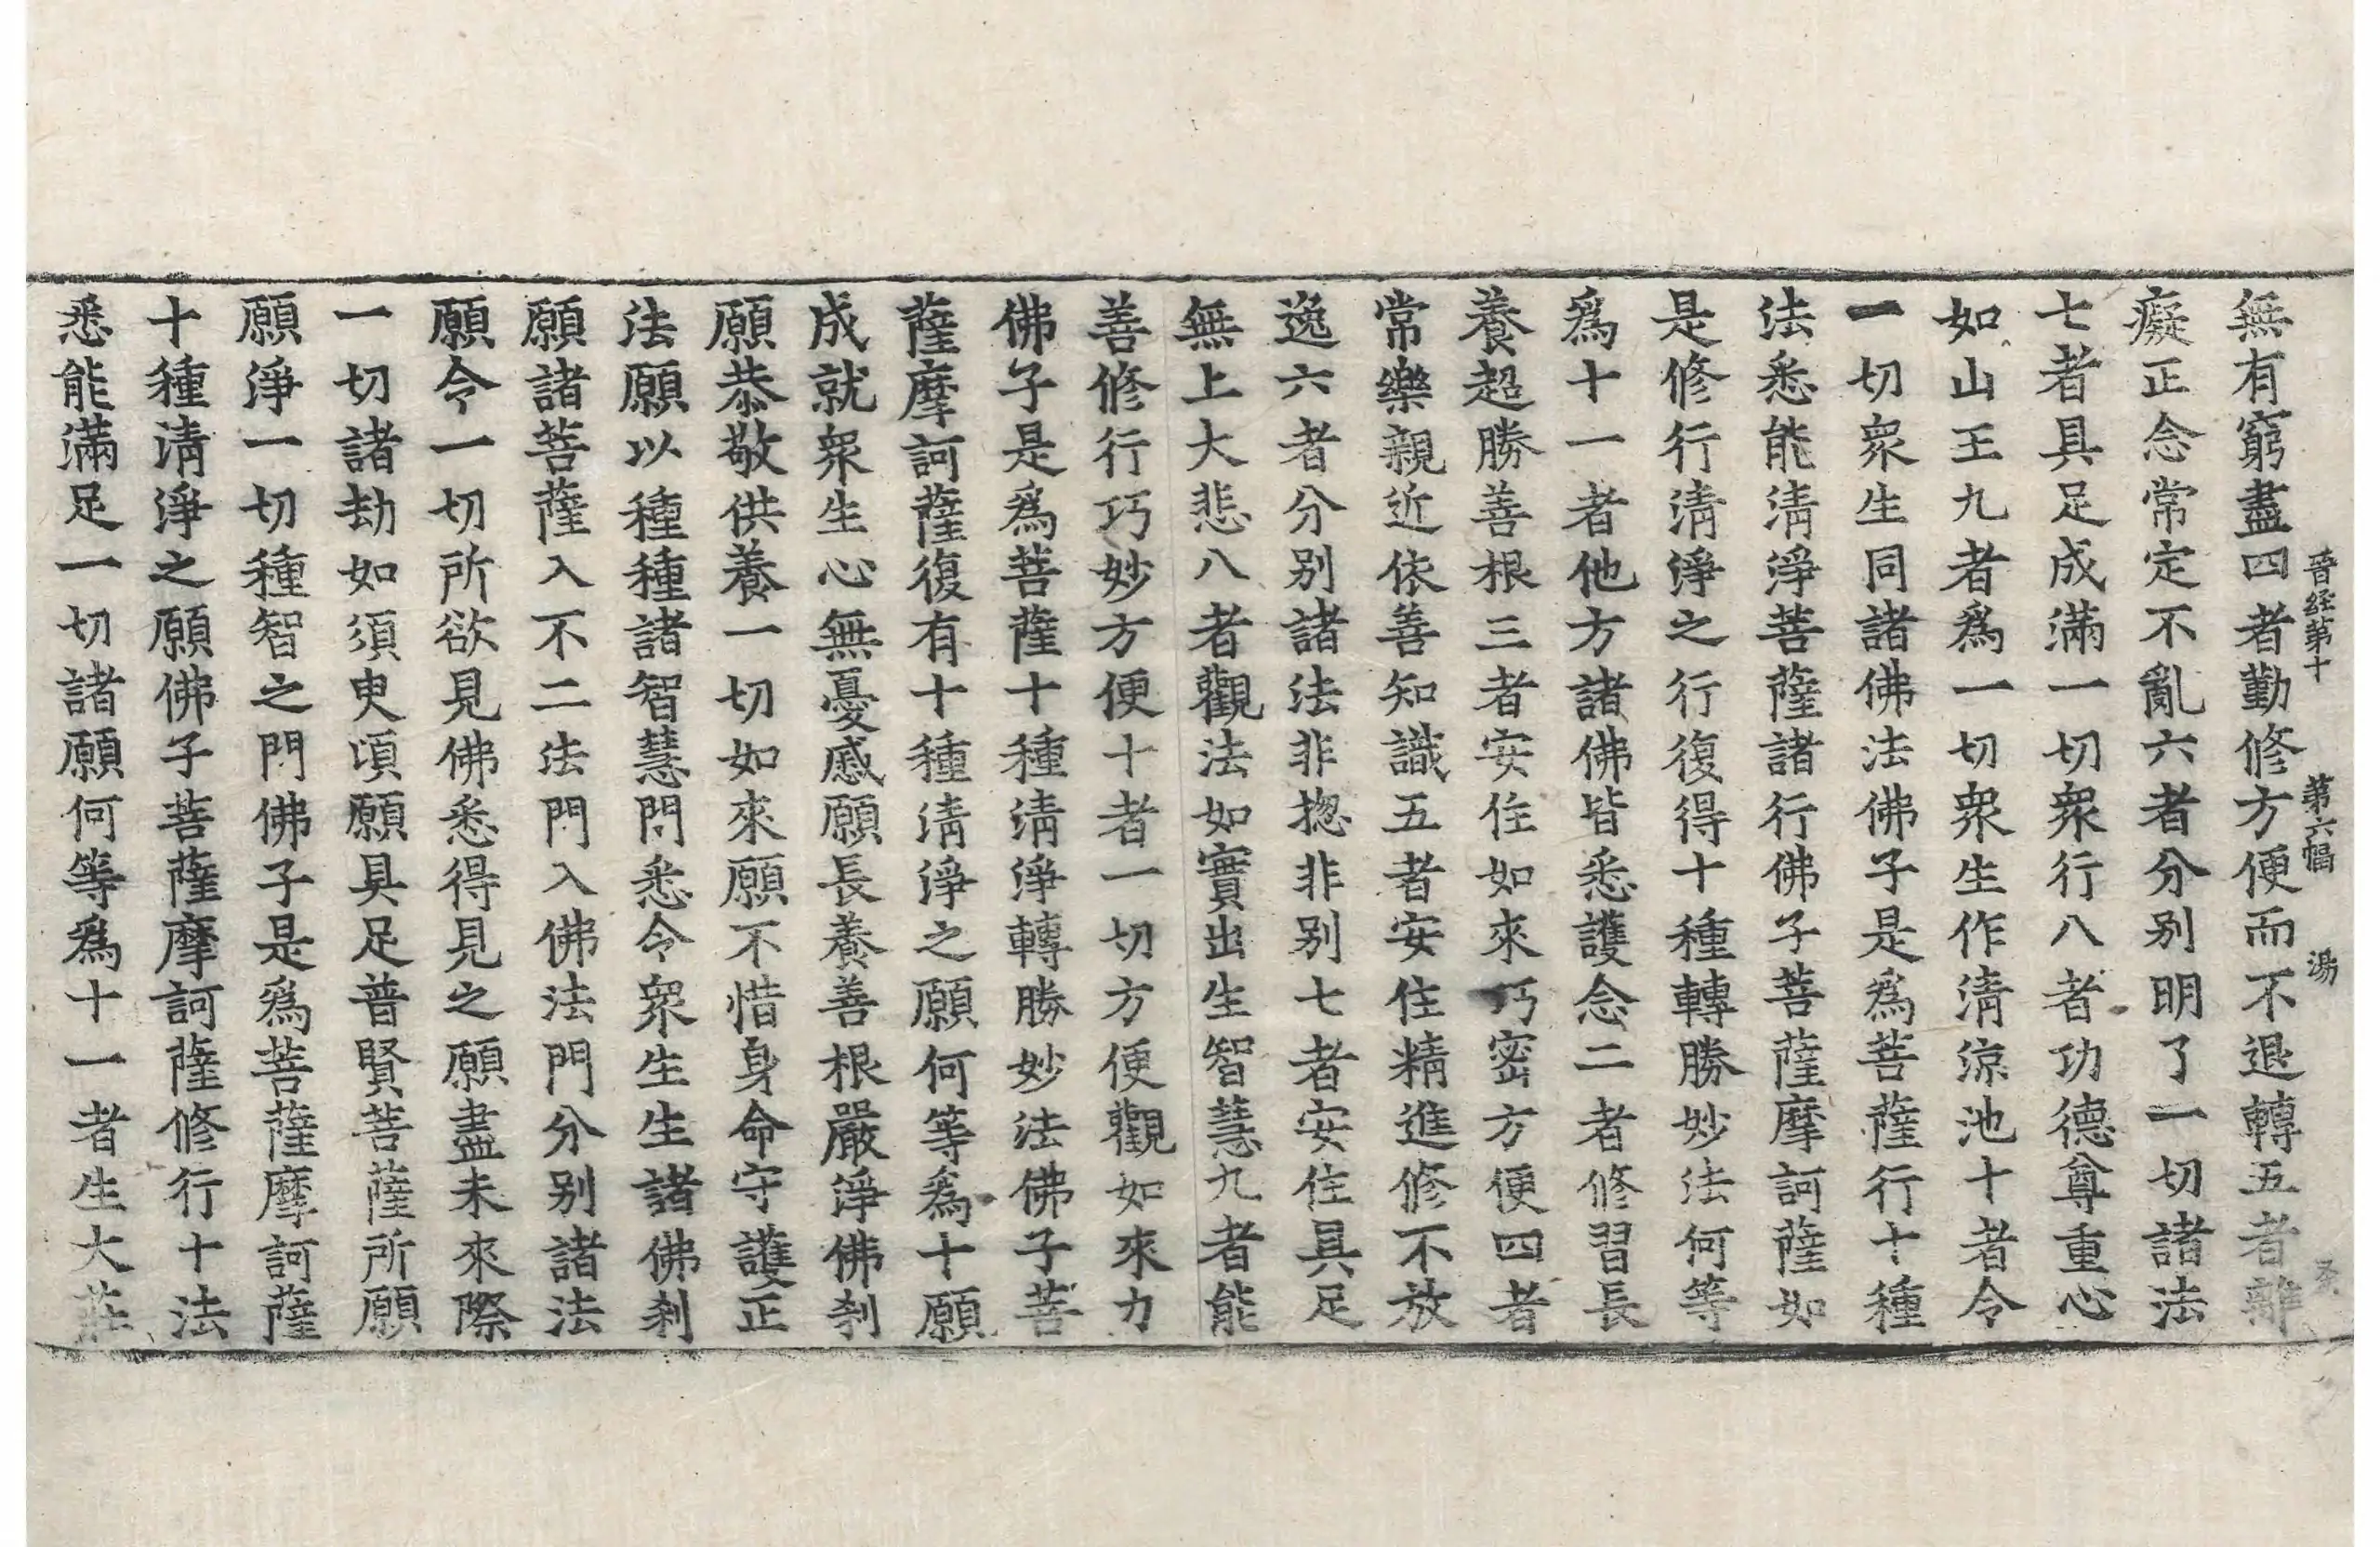 晉經第十 第六幅 湯
無有窮盡四者勤修方便而不退轉五者離
癡正念常定不亂六者分别明了一切諸法
七者具足成滿一切衆行八者功德尊重心
如山王九者爲一切衆生作清涼池十者令
一切衆生同諸佛法佛子是爲菩薩行十種
法悉能清淨菩薩諸行佛子菩薩摩訶薩如
是修行清淨之行復得十種轉勝妙法何等
爲十一者他方諸佛皆悉護念二者修習長
養超勝善根三者安住如來巧密方便四者
常樂親近依善知識五者安住精進修不放
逸六者分别諸法非揔非别七者安住具足
無上大悲八者觀法如實出生智慧九者能
善修行巧妙方便十者一切方便觀如來力
佛子是爲菩薩十種清淨轉勝妙法佛子菩
薩摩訶薩復有十種清淨之願何等爲十願
成就衆生心無憂慼願長養善根嚴淨佛刹
願恭敬供養一切如來願不惜身命守護正
法願以種種諸智慧門悉令衆生生諸佛刹
願諸菩薩入不二法門入佛法門分别諸法
願令一切所欲見佛悉得見之願盡未來際
一切諸劫如須臾頃願具足普賢菩薩所願
願淨一切種智之門佛子是爲菩薩摩訶薩
十種清淨之願佛子菩薩摩訶薩修行十法
悉能滿足一切諸願何等爲十一者生大莊